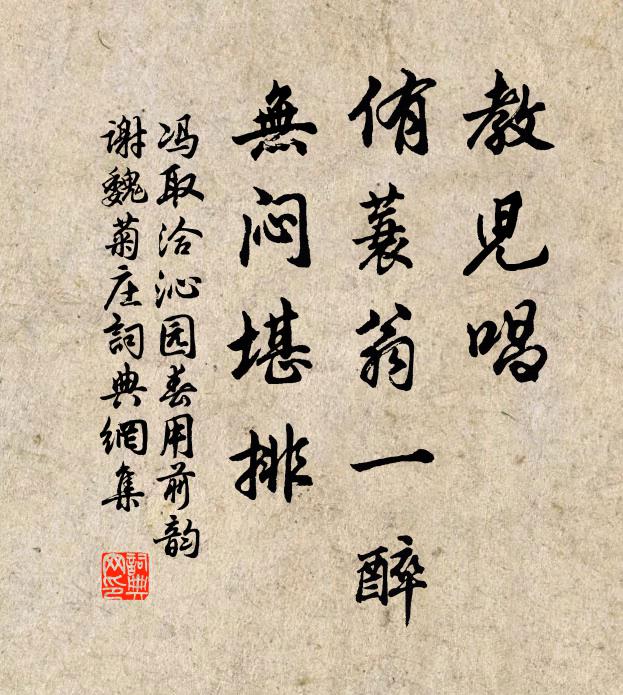 教兒唱
侑蓑翁一醉
無闷堪排
冯取洽沁园春用前韵
谢魏菊庄詞典網集
詞典
网印